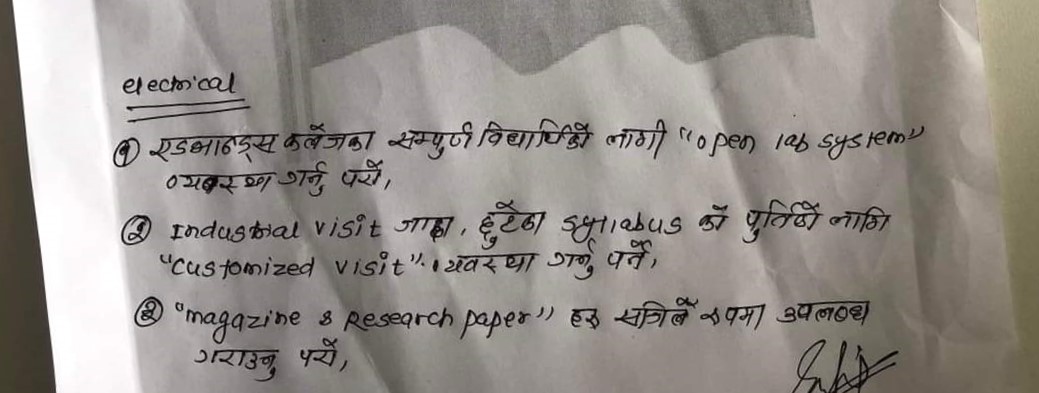 electrical
① एडभान्ड्स कलेजका सम्पुर्ण विद्यार्थिको लागी "open lab system"
व्यवस्था गर्नु पर्यो,
② Industrial visit जादा, छुटेका syllabus को पुर्तिको लागि
"customized visit" व्यवस्था गर्नु पर्ने,
③ "magazine & Research paper" हरु सजिलै रुपमा उपलब्ध
गराउनु पर्यो,